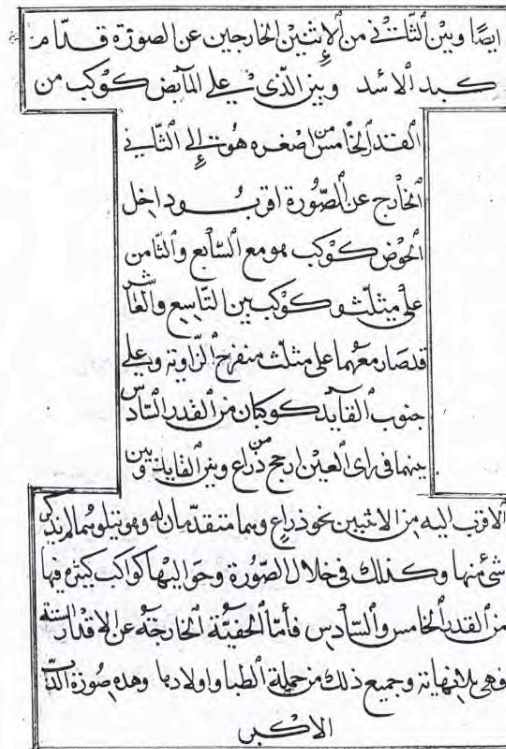 ايضًا وبين الثاني من الإثنين الخارجين عن الصورة قدّام
كبد الاسد وبين الذى على المابض كوكب من
القدر الخامس من اصغره هو إلى الثاني
الخارج عن الصّورة اقرب وداخل
الحوض كوكب هو مع السّابع والثامن
على مثلث وكوكب بين التاسع والعاشر
قد صار معهما على مثلث منفرج الزّاوية وعلى
جنوب القايد كوكبان من القدر السّادس
بينهما فى راى العين ارجح من ذراع وبين القايد وبين
الاقرب اليه من الاثنين نحو ذراع وهما متقدمان له وهو يتلوهما لم يذكر
شئ منها وكذلك فى خلال الصّورة وحواليها كواكب كثيره فيها
من القدر الخامس والسّادس فأمّا الخفيّة الخارجة عن الاقدار الستة
فهى بلا نهاية وجميع ذلك من جملة الظبا واولادها وهذه صورة الدّب
الاكبر